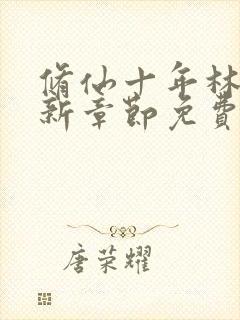 脩仙十年林
新章節免費
唐荣耀